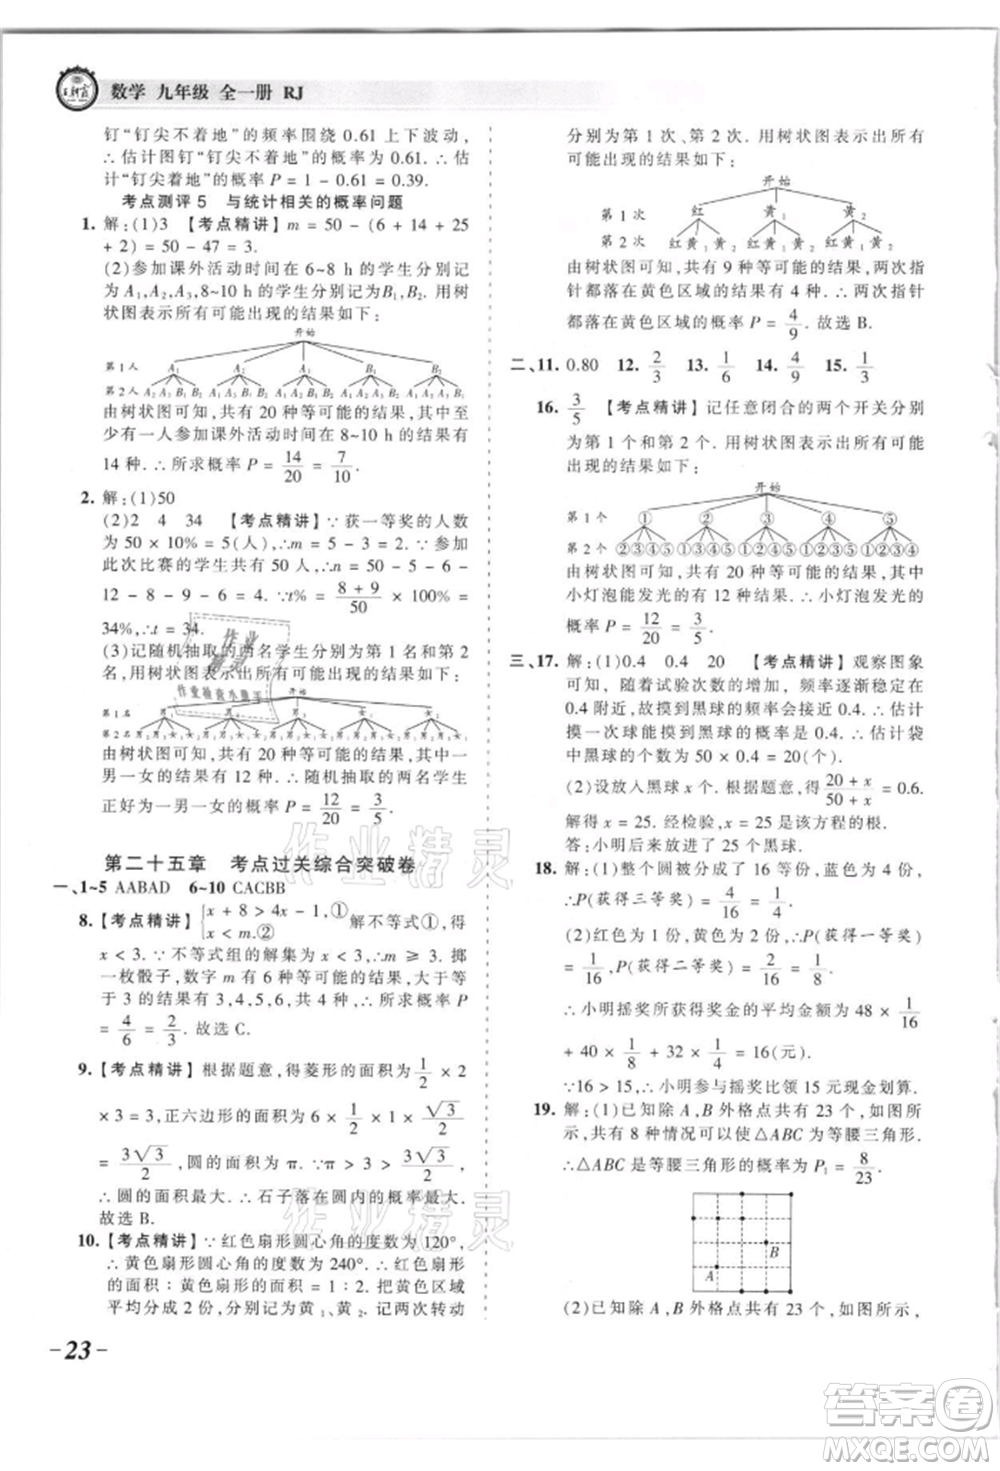 数学 九年级 全一册 RJ
钉“钉尖不着地”的频率围绕 0.61 上下波动,
∴估计图钉“钉尖不着地”的概率为 0.61. ∴估
计“钉尖着地”的概率 P = 1 - 0.61 = 0.39.
考点测评 5 与统计相关的概率问题
1. 解:(1)3 【考点精讲】m = 50 - (6 + 14 + 25
+ 2) = 50 - 47 = 3.
(2)参加课外活动时间在 6~8 h 的学生分别记
为 A₁,A₂,A₃,8~10 h 的学生分别记为 B₁,B₂. 用树
状图表示出所有可能出现的结果如下:
开始
第 1 人 A₁ A₂ A₃ B₁ B₂
第 2 人 A₂ A₃ B₁ B₂ A₁ A₃ B₁ B₂ A₁ A₂ B₁ B₂ A₁ A₂ A₃ B₂ A₁ A₂ A₃ B₁
由树状图可知,共有 20 种等可能的结果,其中至
少有一人参加课外活动时间在 8~10 h 的结果有
14 种. ∴所求概率 P = 14/20 = 7/10.
2. 解:(1)50
(2)2 4 34 【考点精讲】∵获一等奖的人数
为 50 × 10% = 5(人),∴m = 5 - 3 = 2. ∵参加
此次比赛的学生共有 50 人,∴n = 50 - 7 - 9 -
12 - 8 - 5 - 5 = 4. ∵t% = (8 + 9)/50 × 100% =
34%,∴t = 34.
(3)记随机抽取的两名学生分别为第 1 名和第 2
名,用树状图表示出所有可能出现的结果如下:
开始
第 1 名
第 2 名
由树状图可知,共有 20 种等可能的结果,其中
一男一女的结果有 12 种. ∴随机抽取的两名学生
正好是一男一女的概率 P = 12/20 = 3/5.
第二十五章 考点过关综合突破卷
一、1~5 AABAD 6~10 CACBB
8.【考点精讲】{x + 8 > 4x - 1,① x < m.② 解不等式①,得
x < 3. ∵不等式组的解集为 x < m,∴m ≤ 3. ∵掷
一枚骰子,数字 m 有 6 种等可能的结果,大于等
于 3 的结果有 3,4,5,6,共 4 种,∴所求概率 P
= 4/6 = 2/3. 故选 C.
9.【考点精讲】根据题意,得菱形的面积为 1/2 × 2
× 3 = 3,正六边形的面积为 6 × 1/2 × 1 × √3/2
= 3√3/2,圆的面积为 π. ∵π > 3 > 3√3/2,
∴圆的面积最大. ∴石子落在圆内的概率最大.
故选 B.
10.【考点精讲】∵红色扇形圆心角的度数为 120°,
∴黄色扇形圆心角的度数为 240°. ∴红色扇形
的面积:黄色扇形的面积 = 1:2. 把黄色区域
平均分成 2 份,分别记为黄₁、黄₂. 记两次转动
- 23 -
分别为第 1 次、第 2 次. 用树状图表示出所有
可能出现的结果如下:
开始
第 1 次 红 黄₁ 黄₂
第 2 次 红黄₁黄₂ 红黄₁黄₂ 红黄₁黄₂
由树状图可知,共有 9 种等可能的结果,两次指
针都落在黄色区域的结果有 4 种,∴两次指针
都落在黄色区域的概率 P = 4/9. 故选 B.
二、11. 0.80 12. 2/3 13. 1/6 14. 4/9 15. 1/3
16. 3/5 【考点精讲】记任意闭合的两个开关分别
为第 1 个和第 2 个. 用树状图表示出所有可能
出现的结果如下:
开始
第 1 个 ① ② ③ ④ ⑤
第 2 个 ②③④⑤ ①③④⑤ ①②④⑤ ①②③⑤ ①②③④
由树状图可知,共有 20 种等可能的结果,其中
小灯泡能发光的结果有 12 种. ∴小灯泡发光的
概率为 12/20 = 3/5.
三、17. 解:(1)0.4 0.4 20 【考点精讲】观察图象
可知,随着试验次数的增加,频率逐渐稳定在
0.4 附近,故摸到黑球的频率接近 0.4. ∴估计
摸一次球能摸到黑球的概率是 0.4. ∴估计袋
中黑球的个数为 50 × 0.4 = 20(个).
(2)设放入黑球 x 个. 根据题意,得 (20 + x)/(50 + x) = 0.6.
解得 x = 25. 经检验,x = 25 是该方程的根.
答:小明后来放进了 25 个黑球.
18. 解:(1)整个圆被分成了 16 份,绿色为 4 份,
∴P(获得三等奖) = 4/16 = 1/4.
(2)红色为 1 份,黄色为 2 份,∴P(获得一等奖)
= 1/16,P(获得二等奖) = 2/16 = 1/8.
∴小明摇奖所获得奖金的平均金额为 48 × 1/16
+ 40 × 1/8 + 32 × 1/4 = 16(元).
∵16 > 15,∴小明参与摇奖比领 15 元现金划算.
19. 解:(1)已知除 A,B 外格点共有 23 个,如图所
示,共有 8 种情况可以使 △ABC 为等腰三角形.
∴△ABC 是等腰三角形的概率为 P₁ = 8/23.
A
B
(2)已知除 A,B 外格点共有 23 个,如图所示,
作业精灵
作业精灵
答案圈
MXQE.COM